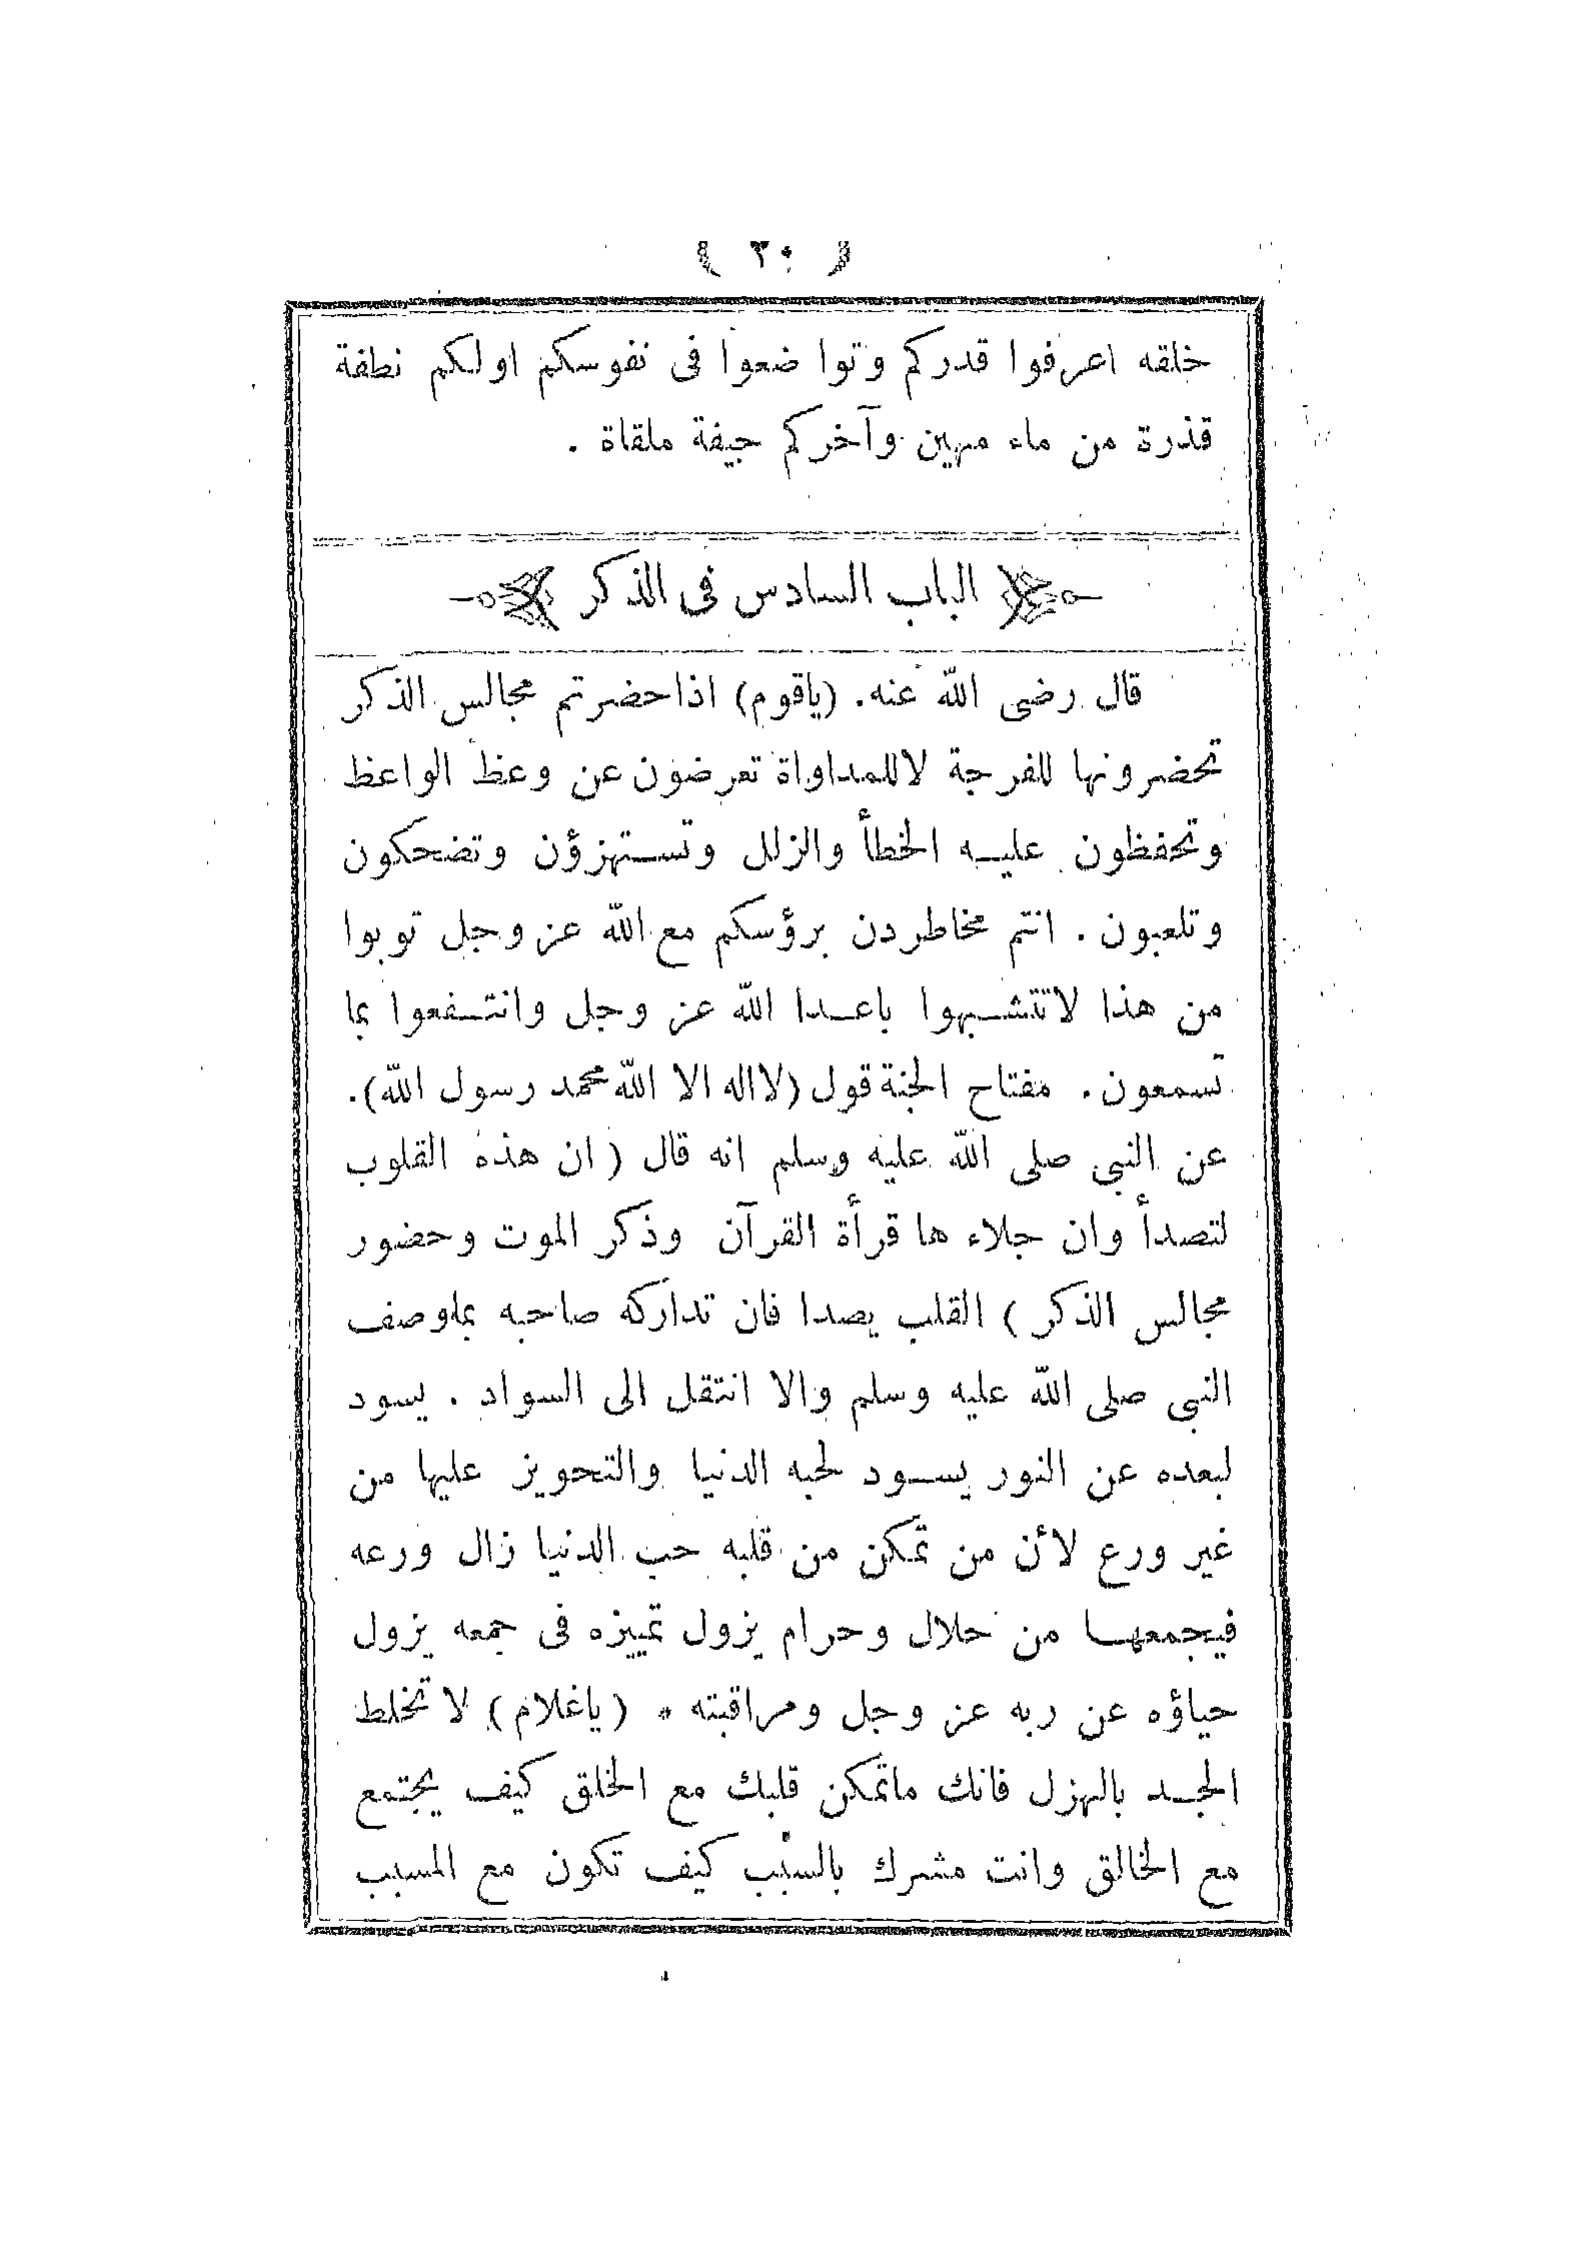 ( ٣٠ )
خلقه اعرفوا قدركم وتوا ضعوا فى نفوسكم اولكم نطفة
قذرة من ماء مهين وآخركم جيفة ملقاة .
الباب السادس فى الذكر
قال رضى الله عنه. (ياقوم) اذاحضرتم مجالس الذكر
تحضرونها للفرجة لاللمداواة تعرضون عن وعظ الواعظ
وتحفظون عليه الخطأ والزلل وتستهزؤن وتضحكون
وتلعبون . انتم مخاطردن برؤسكم مع الله عز وجل توبوا
من هذا لاتتشبهوا باعدا الله عز وجل وانتفعوا بما
تسمعون . مفتاح الجنة قول (لااله الا الله محمد رسول الله).
عن النبى صلى الله عليه وسلم انه قال ( ان هذه القلوب
لتصدأ وان جلاء ها قرأة القرآن وذكر الموت وحضور
مجالس الذكر ) القلب يصدا فان تداركه صاحبه بماوصف
النبى صلى الله عليه وسلم والا انتقل الى السواد . يسود
لبعده عن النور يسود لحبه الدنيا والتحويز عليها من
غير ورع لأن من تمكن من قلبه حب الدنيا زال ورعه
فيجمعها من حلال وحرام يزول تمييزه فى جمعه يزول
حياؤه عن ربه عز وجل ومراقبته * (ياغلام) لا تخلط
الجد بالهزل فانك ماتمكن قلبك مع الخلق كيف يجتمع
مع الخالق وانت مشرك بالسبب كيف تكون مع المسبب